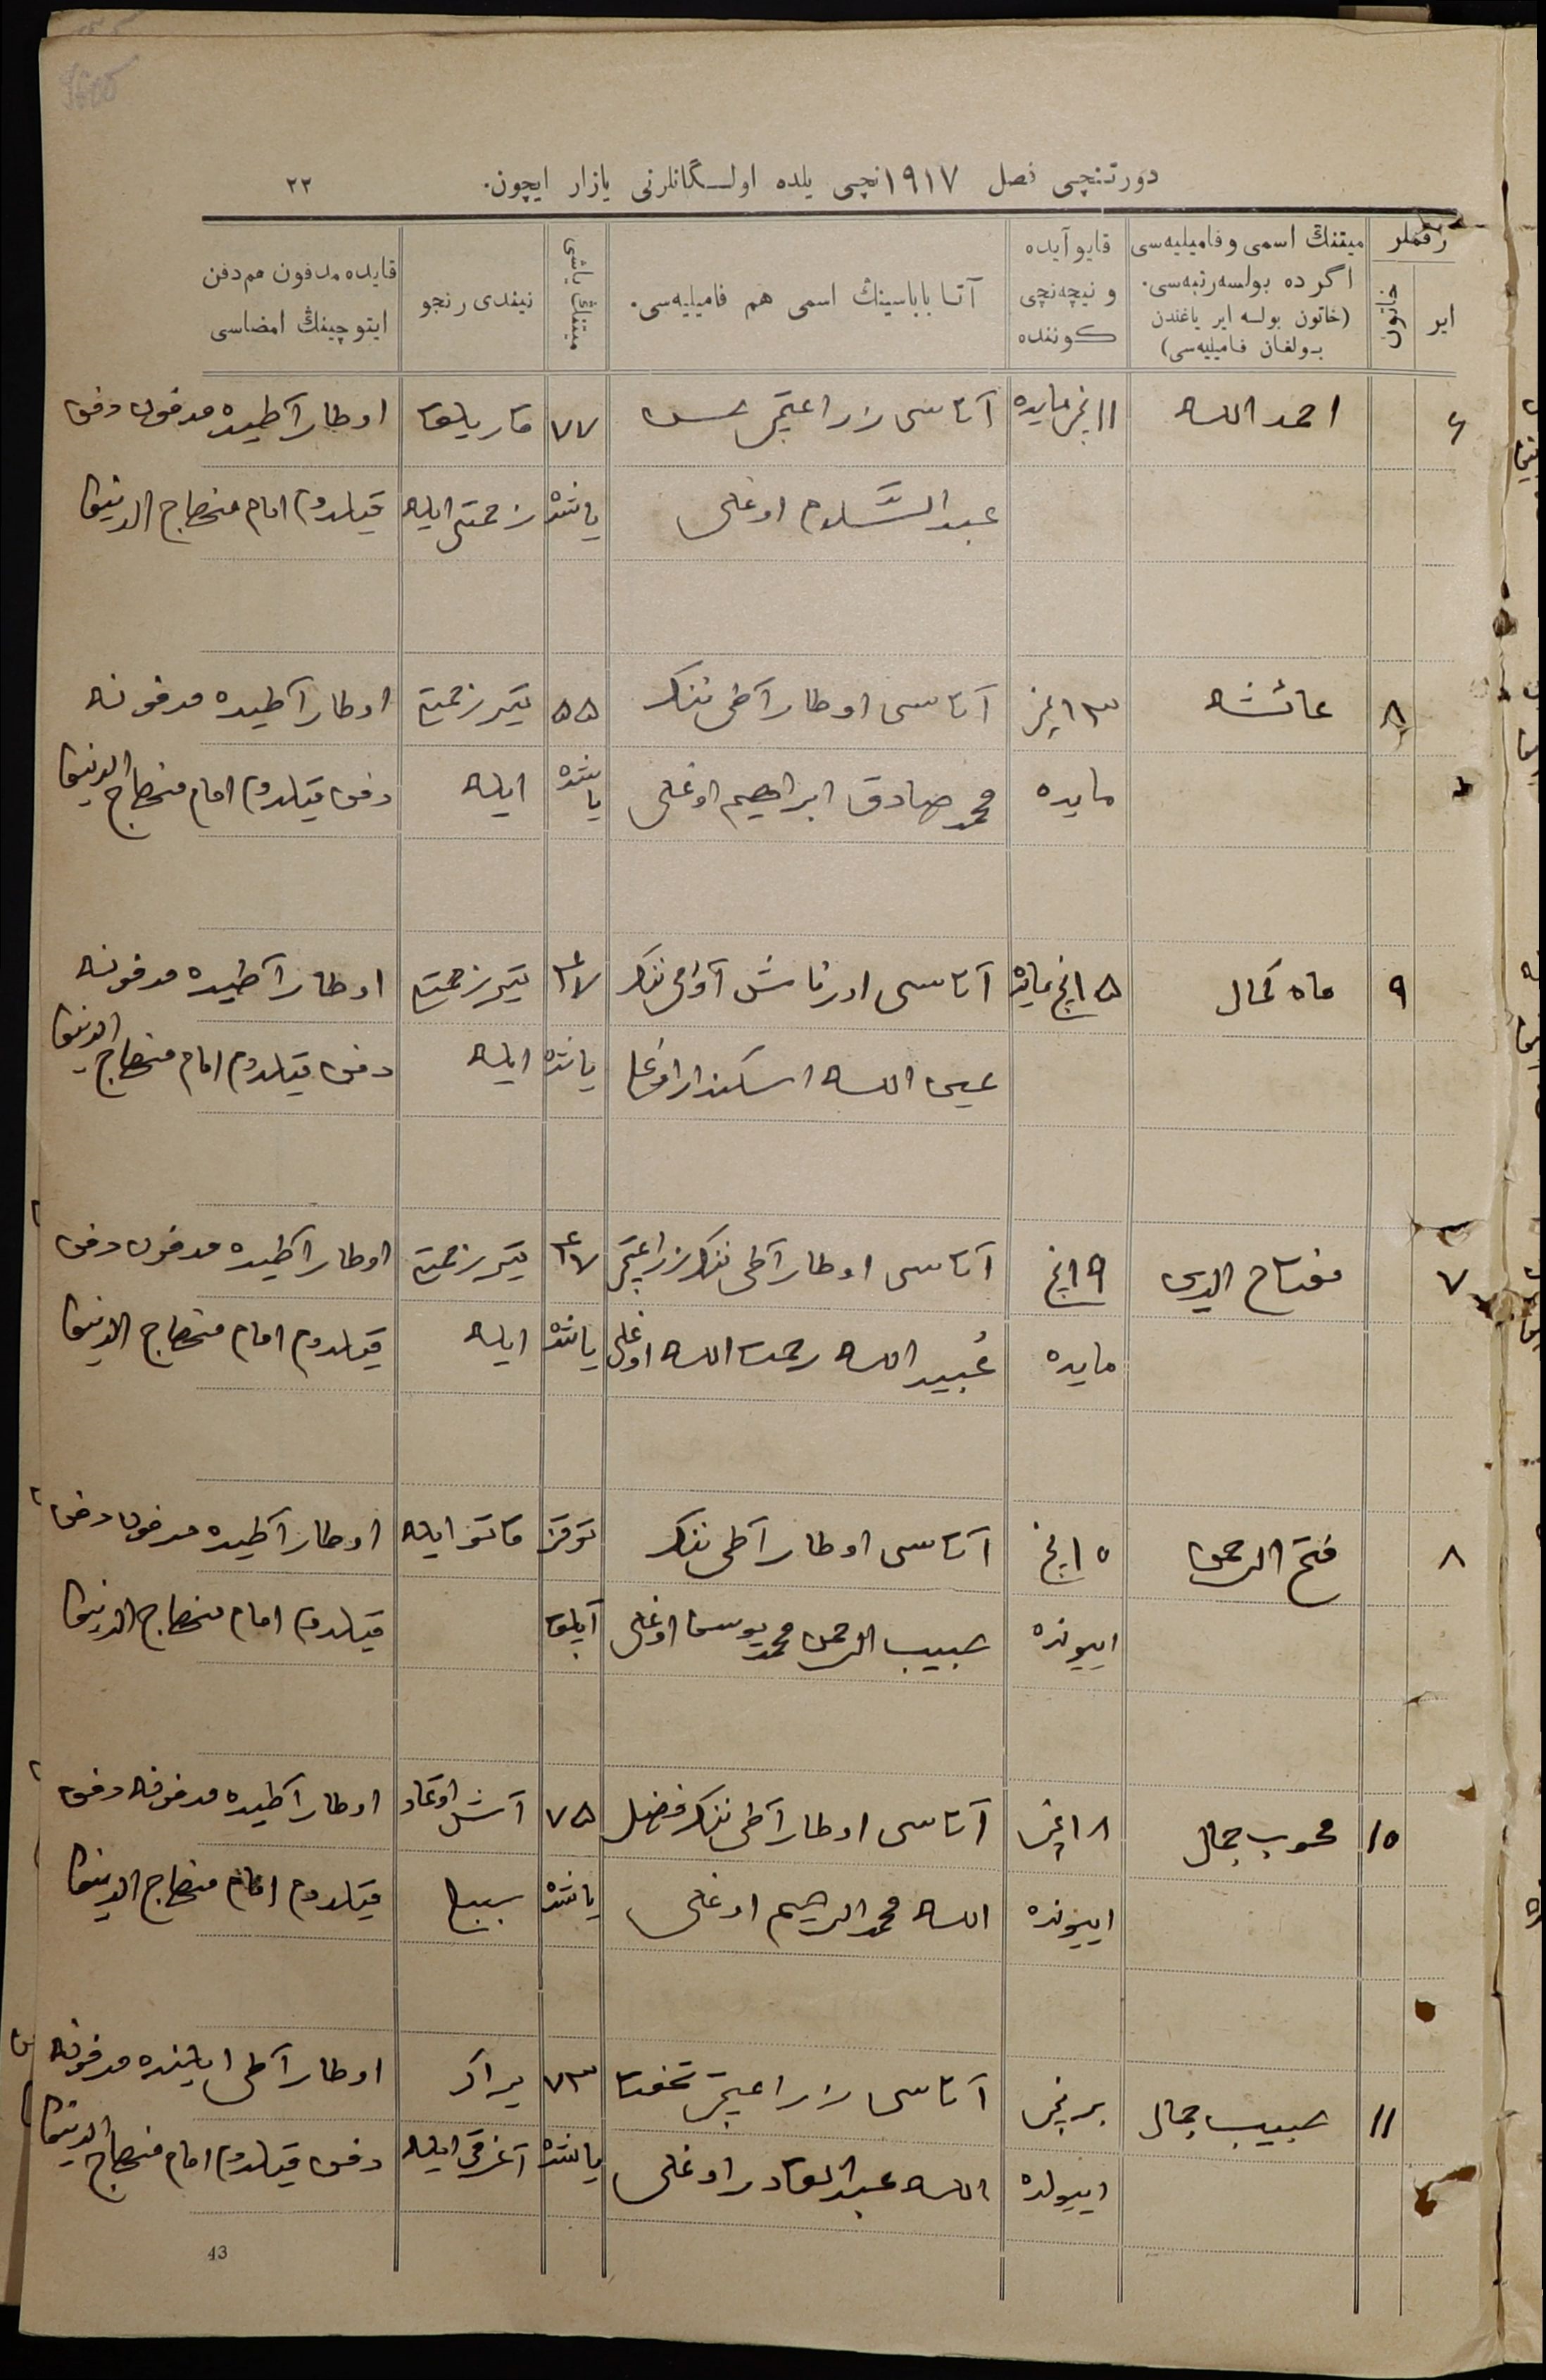 دورتنچی فصل ۱۹۱۷نچی یلده اولسگانلرنی یازار ایچون.
۲۲
رقملر
ایر
خاتون
میتنڭ اسمی و فامیلیه‌سی
اگرده بولسه رتبه‌سی.
(خاتون بولسه ایر یاغندن
بولغان فامیلیه‌سی)
قایو آیده
و نیچه‌نچی
كوننده
آتا باباسینڭ اسمی هم فامیلیه‌سی.
میتنڭ یاشی
نیندی رنجو
قایده مدفون هم دفن
ایتوچینڭ امضاسی
۶
احمد الله
۱۱نچی مایده
آتاسی زراعتچی
عبد السَّلام اوغلی
۷۷
یاشنده
قارتلق
زحمتی ایله
اوطار آطیده مدفون دفن
قیلدوم امام منهاج الدین
۸
عائشه
۱۳نچی
مایده
آتاسی اوطار آطی ننك
محمد صادق ابراهیم اوغلی
۵۵
یاشنده
زحمتی
ایله
اوطار آطیده مدفونه
دفن قیلدوم امام منهاج الدین
۹
ماه كمال
۱۵نچی مایده
آتاسی
الله اسكندار اوغلی
یاشنده
زحمتی
ایله
اوطار آطیده مدفونه
دفن قیلدوم امام منهاج الدین
۷
مفتاح الدین
۱۹نچی
مایده
آتاسی اوطار آطی ننك زراعتچی
عُبید الله رحمت الله اوغلی
یاشنده
زحمتی
ایله
اوطار آطیده مدفون دفن
قیلدوم امام منهاج الدین
۸
فتح الرحمن
۱۵نچی
اییونده
آتاسی اوطار آطی ننك
حبیب الرحمن محمد یوسف اوغلی
توقز
آیلق
ایله
اوطار آطیده مدفون دفن
قیلدوم امام منهاج الدین
۱۰
محبوب جمال
۱۸نچی
اییونده
آتاسی اوطار آطی ننك فضل
الله محمد الرحیم اوغلی
۷۵
یاشنده
آش
اوطار آطیده مدفونه دفن
قیلدوم امام منهاج الدین
۱۱
حبیب جمال
برنچی
اییولده
آتاسی زراعتچی تحفت
الله عبد القادر اوغلی
۷۳
یاشنده
یوراك
آغرقی ایله
اوطار آطی ایلینده مدفونه
دفن قیلدوم امام منهاج الدین
43